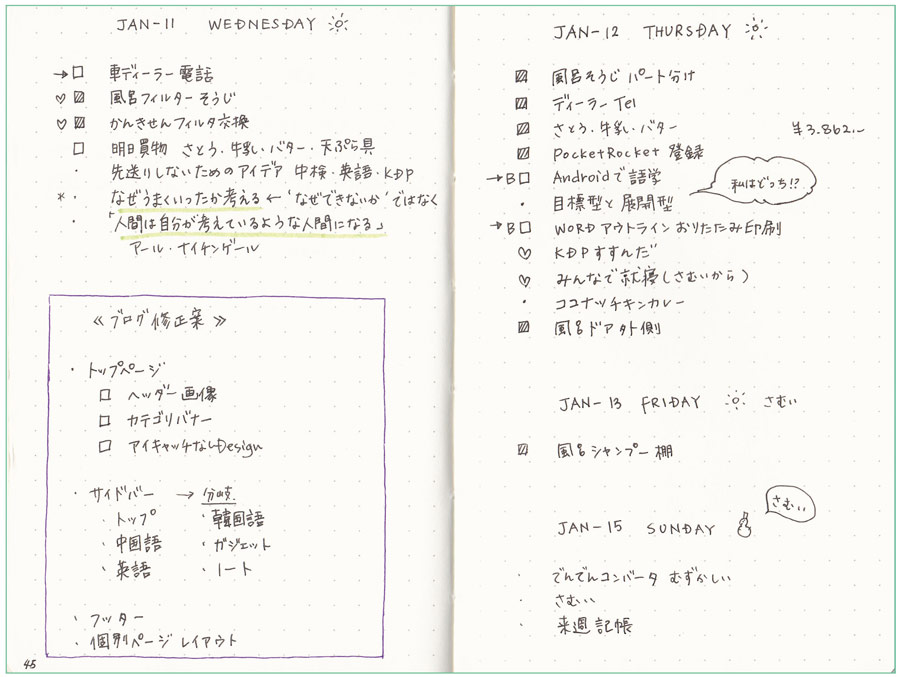 JAN-11 WEDNESDAY
→□ 車ディーラー電話
♡ 風呂フィルターそうじ
♡ かんきせんフィルタ交換
□ 明日買物 さとう・牛乳・バター・天ぷら具
・ 先送りしないためのアイデア 中検・英語・KDP
*・ なぜうまくいったか考える ← 'なぜできないか'ではなく
・ 「人間は自分が考えているような人間になる」
アール・ナイチンゲール
≪ブログ修正案≫
・トップページ
□ ヘッダー画像
□ カテゴリバナー
□ アイキャッチなしDesign
・サイドバー → 分岐
・トップ ・韓国語
・中国語 ・ガジェット
・英語 ・ノート
・フッター
・個別ページレイアウト
45
JAN-12 THURSDAY
風呂そうじパート分け
ディーラーTel
さとう・牛乳・バター ¥3.862.-
PocketRocket 登録
→B□ Androidで語学
私はどっち!?
・ 目標型と展開型
→B□ WORDアウトラインおりたたみ印刷
♡ KDPすすんだ
♡ みんなで就寝(さむいから)
・ ココナッツチキンカレー
風呂ドア外側
JAN-13 FRIDAY さむい
風呂シャンプー棚
JAN-15 SUNDAY
さむい
・ でんでんコンバータ むずかしい
・ さむい
・ 来週記帳